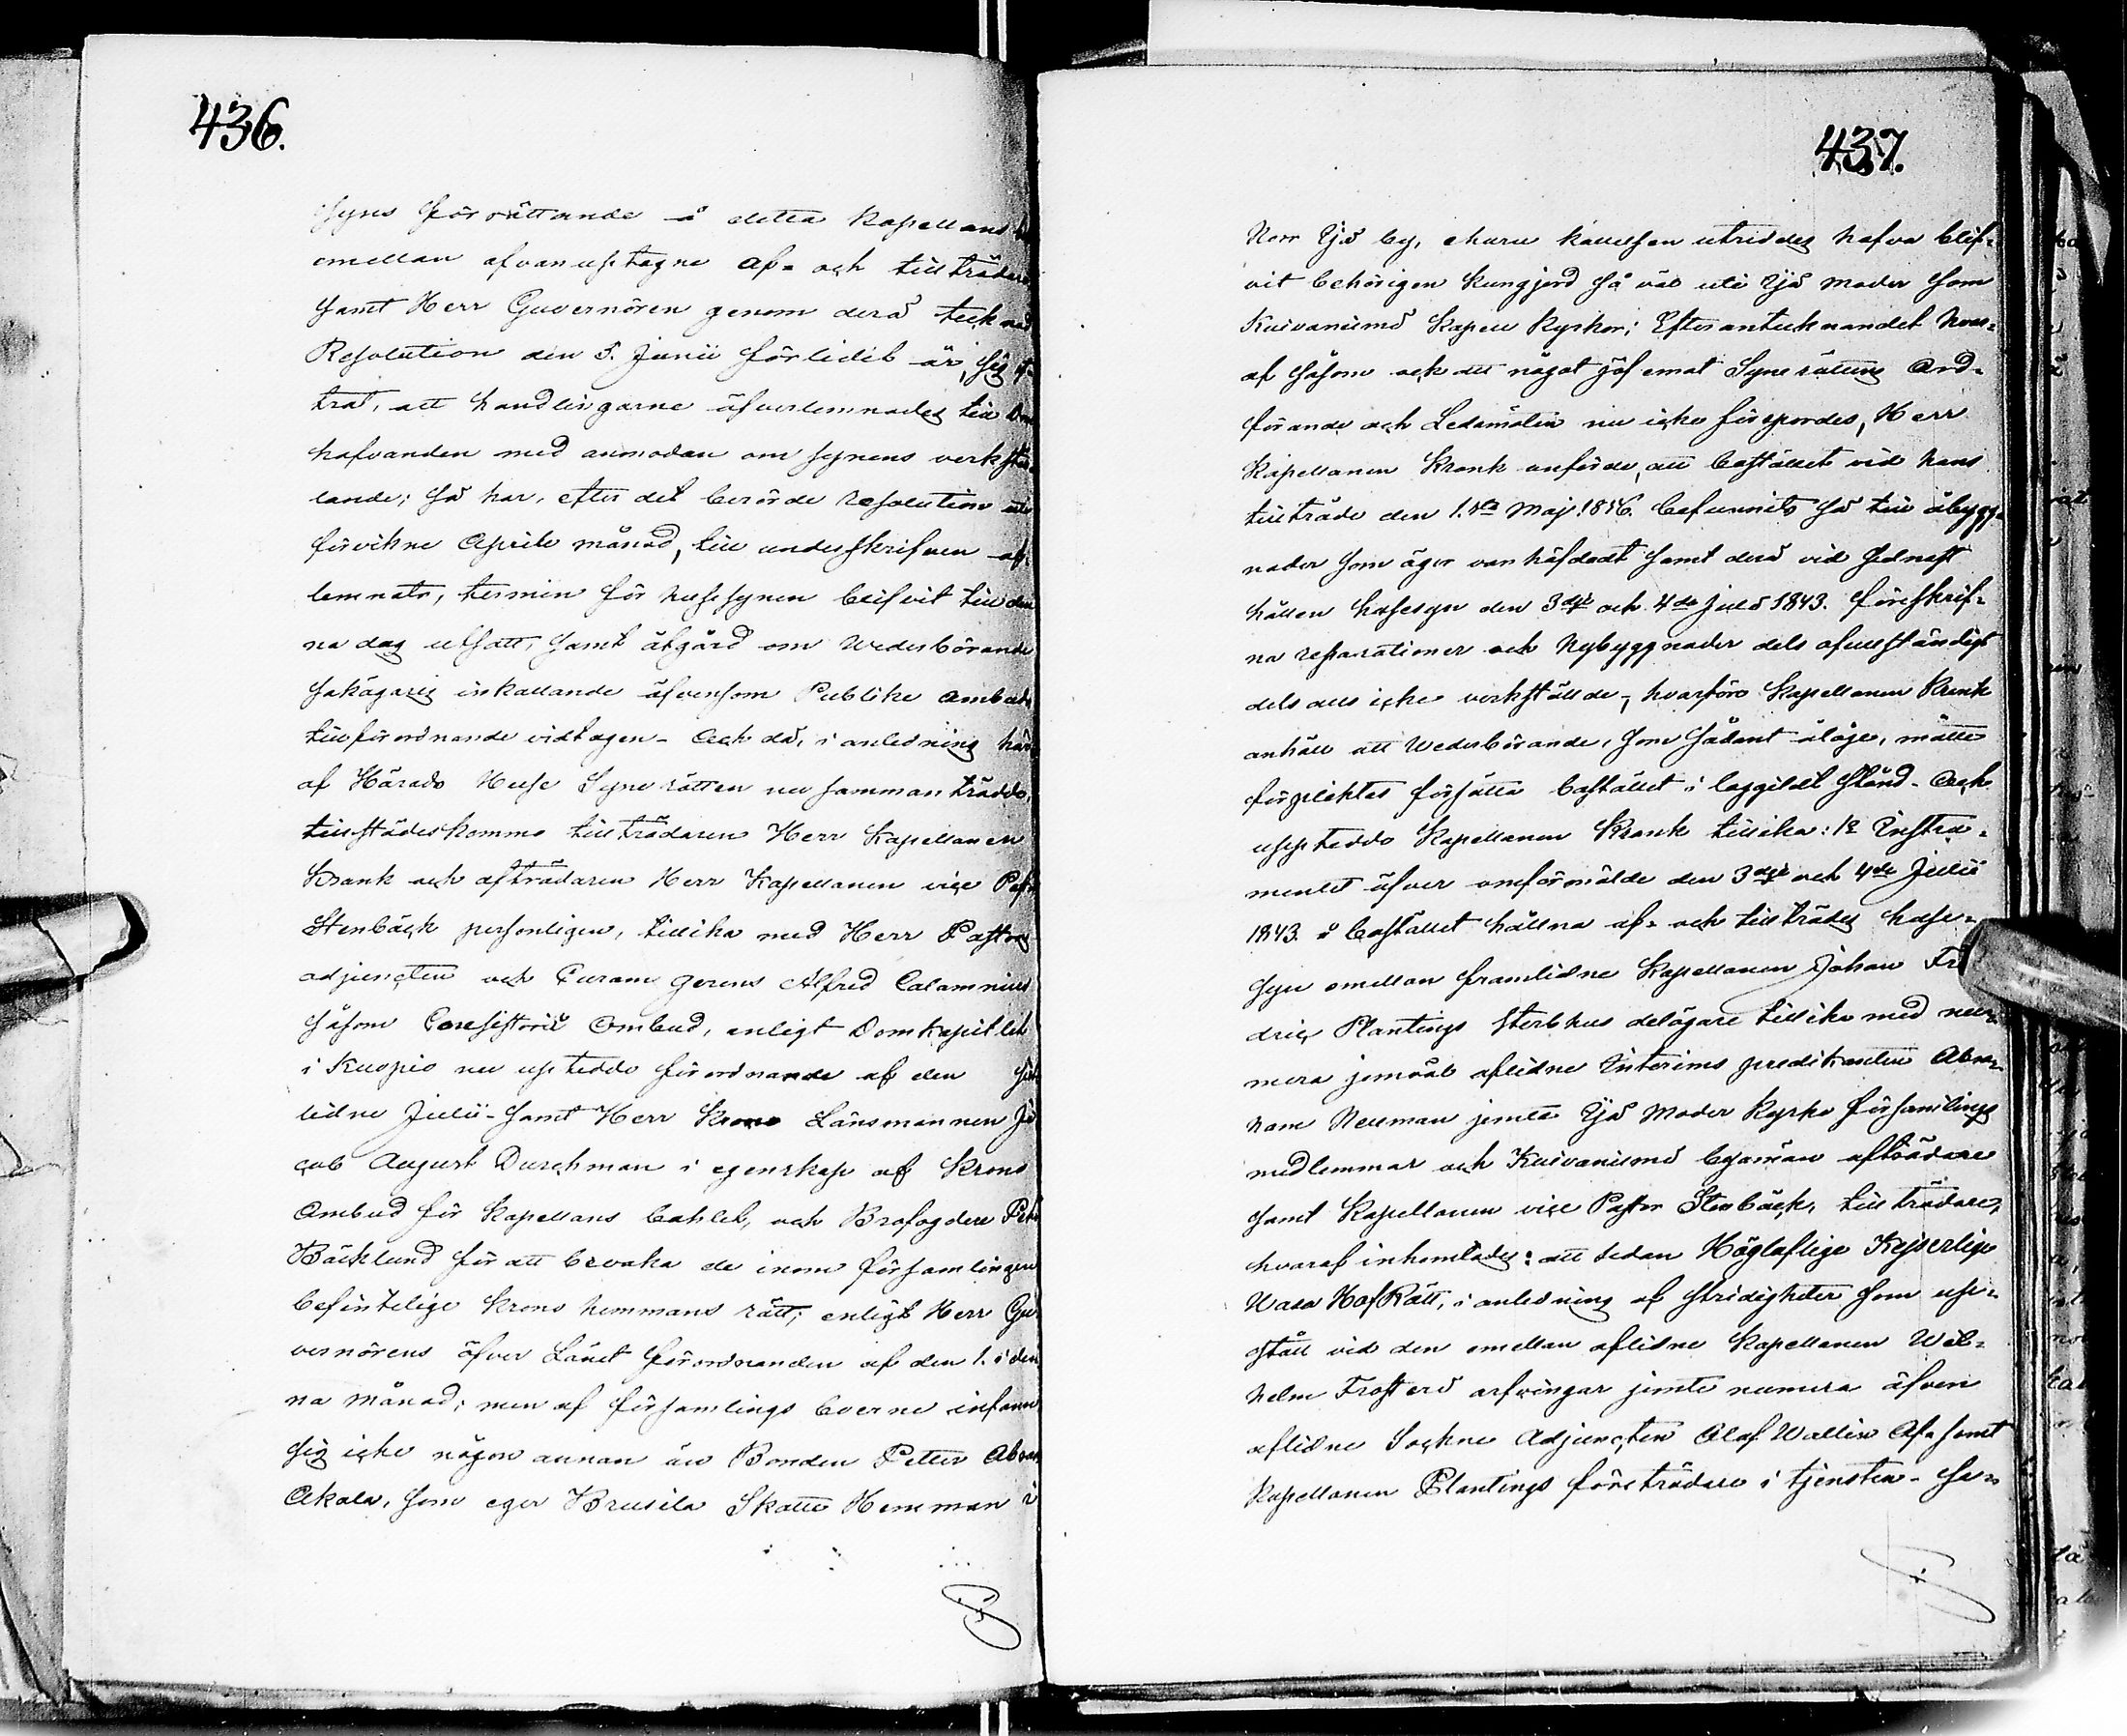 436.
Syns förrättande å detta Kapellans bol
emellan ofvanuptagne af- och tillträdare
samt Herr Guvernören genom derå teknad
Resolution den 5. Junii förlidit år, sig yt-
trat, att handlingarne öfverlemnades till Dom
hafvanden med anmodan om synens verkstäl-
lande; Så har, efter det berörde resolution uti
förvikne Aprile månad, till underskrifven af-
lemnats, termin för husesynen blifvit till den
na dag utsatt, samt åtgärd om Wederbörande
sakägaris inkallande äfvensom Publike ombuds
tillförordnande vidtagen - Och då, i anledning här-
af Härads Huse Syne rätten nu sammanträdde,
tillstädeskommo tillträdaren Herr Kapellanen
Krank och afträdaren Herr Kapellanen vice Past
Stenbäck personligen, tillika med Herr Pastors
adjuncten och Curam gerens Alfred Calamnius
såsom Consistorii Ombud, enligt Domkapitlet
i Kuopio nu upteddo förordnande af den sist
lidne Julii - samt Herr Krono Länsmannen Ja
cob August Durchman i egenskap af Krono
Ombud för Kapellans bohlet, och Brofogden Pet
Bäcklund för att bevaka de inom församlingen
befintelige Krono hemmans rätt; enligt Herr Gu-
vernörens öfver Länet förordnanden af den 1. i den
na månad; men af församlings boerne infann
sig icke någon annan än Bonden Petter Abra
Akola, som eger Brusila Skatte Hemman i
437.
Norr Ijo by, ehuru kallelsen utriddes hafva blif-
vit behörigen kungjord så väl uti Ijo moder som
Kuivaniemi Kapell Kyrkor; Efter antecknandet hvar-
af såsom ock att något jäf emot Syne rättens Ord-
förande och Ledamöter nu icke förspordes, Herr
Kapellanen Krank anförde, att bostället vid hans
tillträde den 1.sta Maj 1856. befunnits så till åbygg-
nader som ägor vanhäfdadt samt derå vid sednast
hållen husesyn den 3dje och 4de Julii 1843. föreskrif-
na reparationer och Nybyggnader dels ofullständigt
dels alls icke verkställde, hvarföre Kapellanen Krank
anhöll att Wederbörande, som sådant ålåge, måtte
förpliktas försätta bostället i laggildt stånd - Och
uppteddo Kapellanen Krank tillika: 1o Instru-
mentet öfver omförmälde den 3dje och 4de Julii
1843. å bostället hållna af- och tillträdes huse-
syn emellan framlidne Kapellanen Johan Fre
dric Plantings sterbhus delägare tillika med nu-
mera jemväl aflidne Interims predikanten Abra-
ham Neuman jemte Ijo Moder Kyrko församlings
medlemmar och Kuivaniemi byamän afträdare
samt Kapellanen vice Pastor Stenbäck, tillträdare,
hvaraf inhemtades: att sedan Högloflige Kejserlige
Wasa HofRätt, i anledning af stridigheter som up-
stått vid den emellan aflidne Kapellanen Wil-
helm Frosterd arfvingar jemte numera äfven
aflidne Sockne Adjuncten Olof Wallin Af- samt
Kapellanen Plantings företrädare i tjensten - Hu-